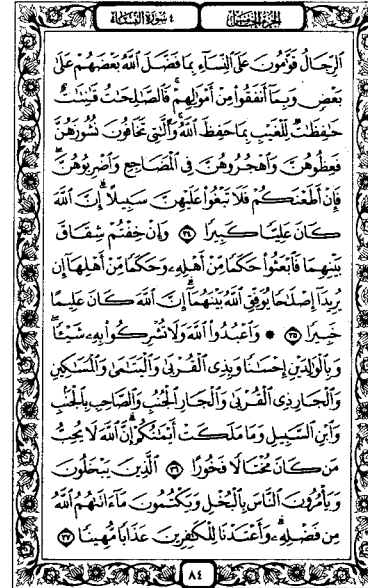 الجزء الخامس ٤ سورة النساء
ٱلرِّجَالُ قَوَّٰمُونَ عَلَى ٱلنِّسَآءِ بِمَا فَضَّلَ ٱللَّهُ بَعْضَهُمْ عَلَىٰ
بَعْضٍ وَبِمَآ أَنفَقُوا۟ مِنْ أَمْوَٰلِهِمْ ۚ فَٱلصَّٰلِحَٰتُ قَٰنِتَٰتٌ
حَٰفِظَٰتٌ لِّلْغَيْبِ بِمَا حَفِظَ ٱللَّهُ ۚ وَٱلَّٰتِى تَخَافُونَ نُشُوزَهُنَّ
فَعِظُوهُنَّ وَٱهْجُرُوهُنَّ فِى ٱلْمَضَاجِعِ وَٱضْرِبُوهُنَّ ۖ
فَإِنْ أَطَعْنَكُمْ فَلَا تَبْغُوا۟ عَلَيْهِنَّ سَبِيلًا ۗ إِنَّ ٱللَّهَ
كَانَ عَلِيًّا كَبِيرًا ٣٤ وَإِنْ خِفْتُمْ شِقَاقَ
بَيْنِهِمَا فَٱبْعَثُوا۟ حَكَمًا مِّنْ أَهْلِهِۦ وَحَكَمًا مِّنْ أَهْلِهَآ إِن
يُرِيدَآ إِصْلَٰحًا يُوَفِّقِ ٱللَّهُ بَيْنَهُمَآ ۗ إِنَّ ٱللَّهَ كَانَ عَلِيمًا
خَبِيرًا ٣٥ ۞ وَٱعْبُدُوا۟ ٱللَّهَ وَلَا تُشْرِكُوا۟ بِهِۦ شَيْـًٔا ۖ
وَبِٱلْوَٰلِدَيْنِ إِحْسَٰنًا وَبِذِى ٱلْقُرْبَىٰ وَٱلْيَتَٰمَىٰ وَٱلْمَسَٰكِينِ
وَٱلْجَارِ ذِى ٱلْقُرْبَىٰ وَٱلْجَارِ ٱلْجُنُبِ وَٱلصَّاحِبِ بِٱلْجَنۢبِ
وَٱبْنِ ٱلسَّبِيلِ وَمَا مَلَكَتْ أَيْمَٰنُكُمْ ۗ إِنَّ ٱللَّهَ لَا يُحِبُّ
مَن كَانَ مُخْتَالًا فَخُورًا ٣٦ ٱلَّذِينَ يَبْخَلُونَ
وَيَأْمُرُونَ ٱلنَّاسَ بِٱلْبُخْلِ وَيَكْتُمُونَ مَآ ءَاتَىٰهُمُ ٱللَّهُ
مِن فَضْلِهِۦ ۗ وَأَعْتَدْنَا لِلْكَٰفِرِينَ عَذَابًا مُّهِينًا ٣٧
٨٤